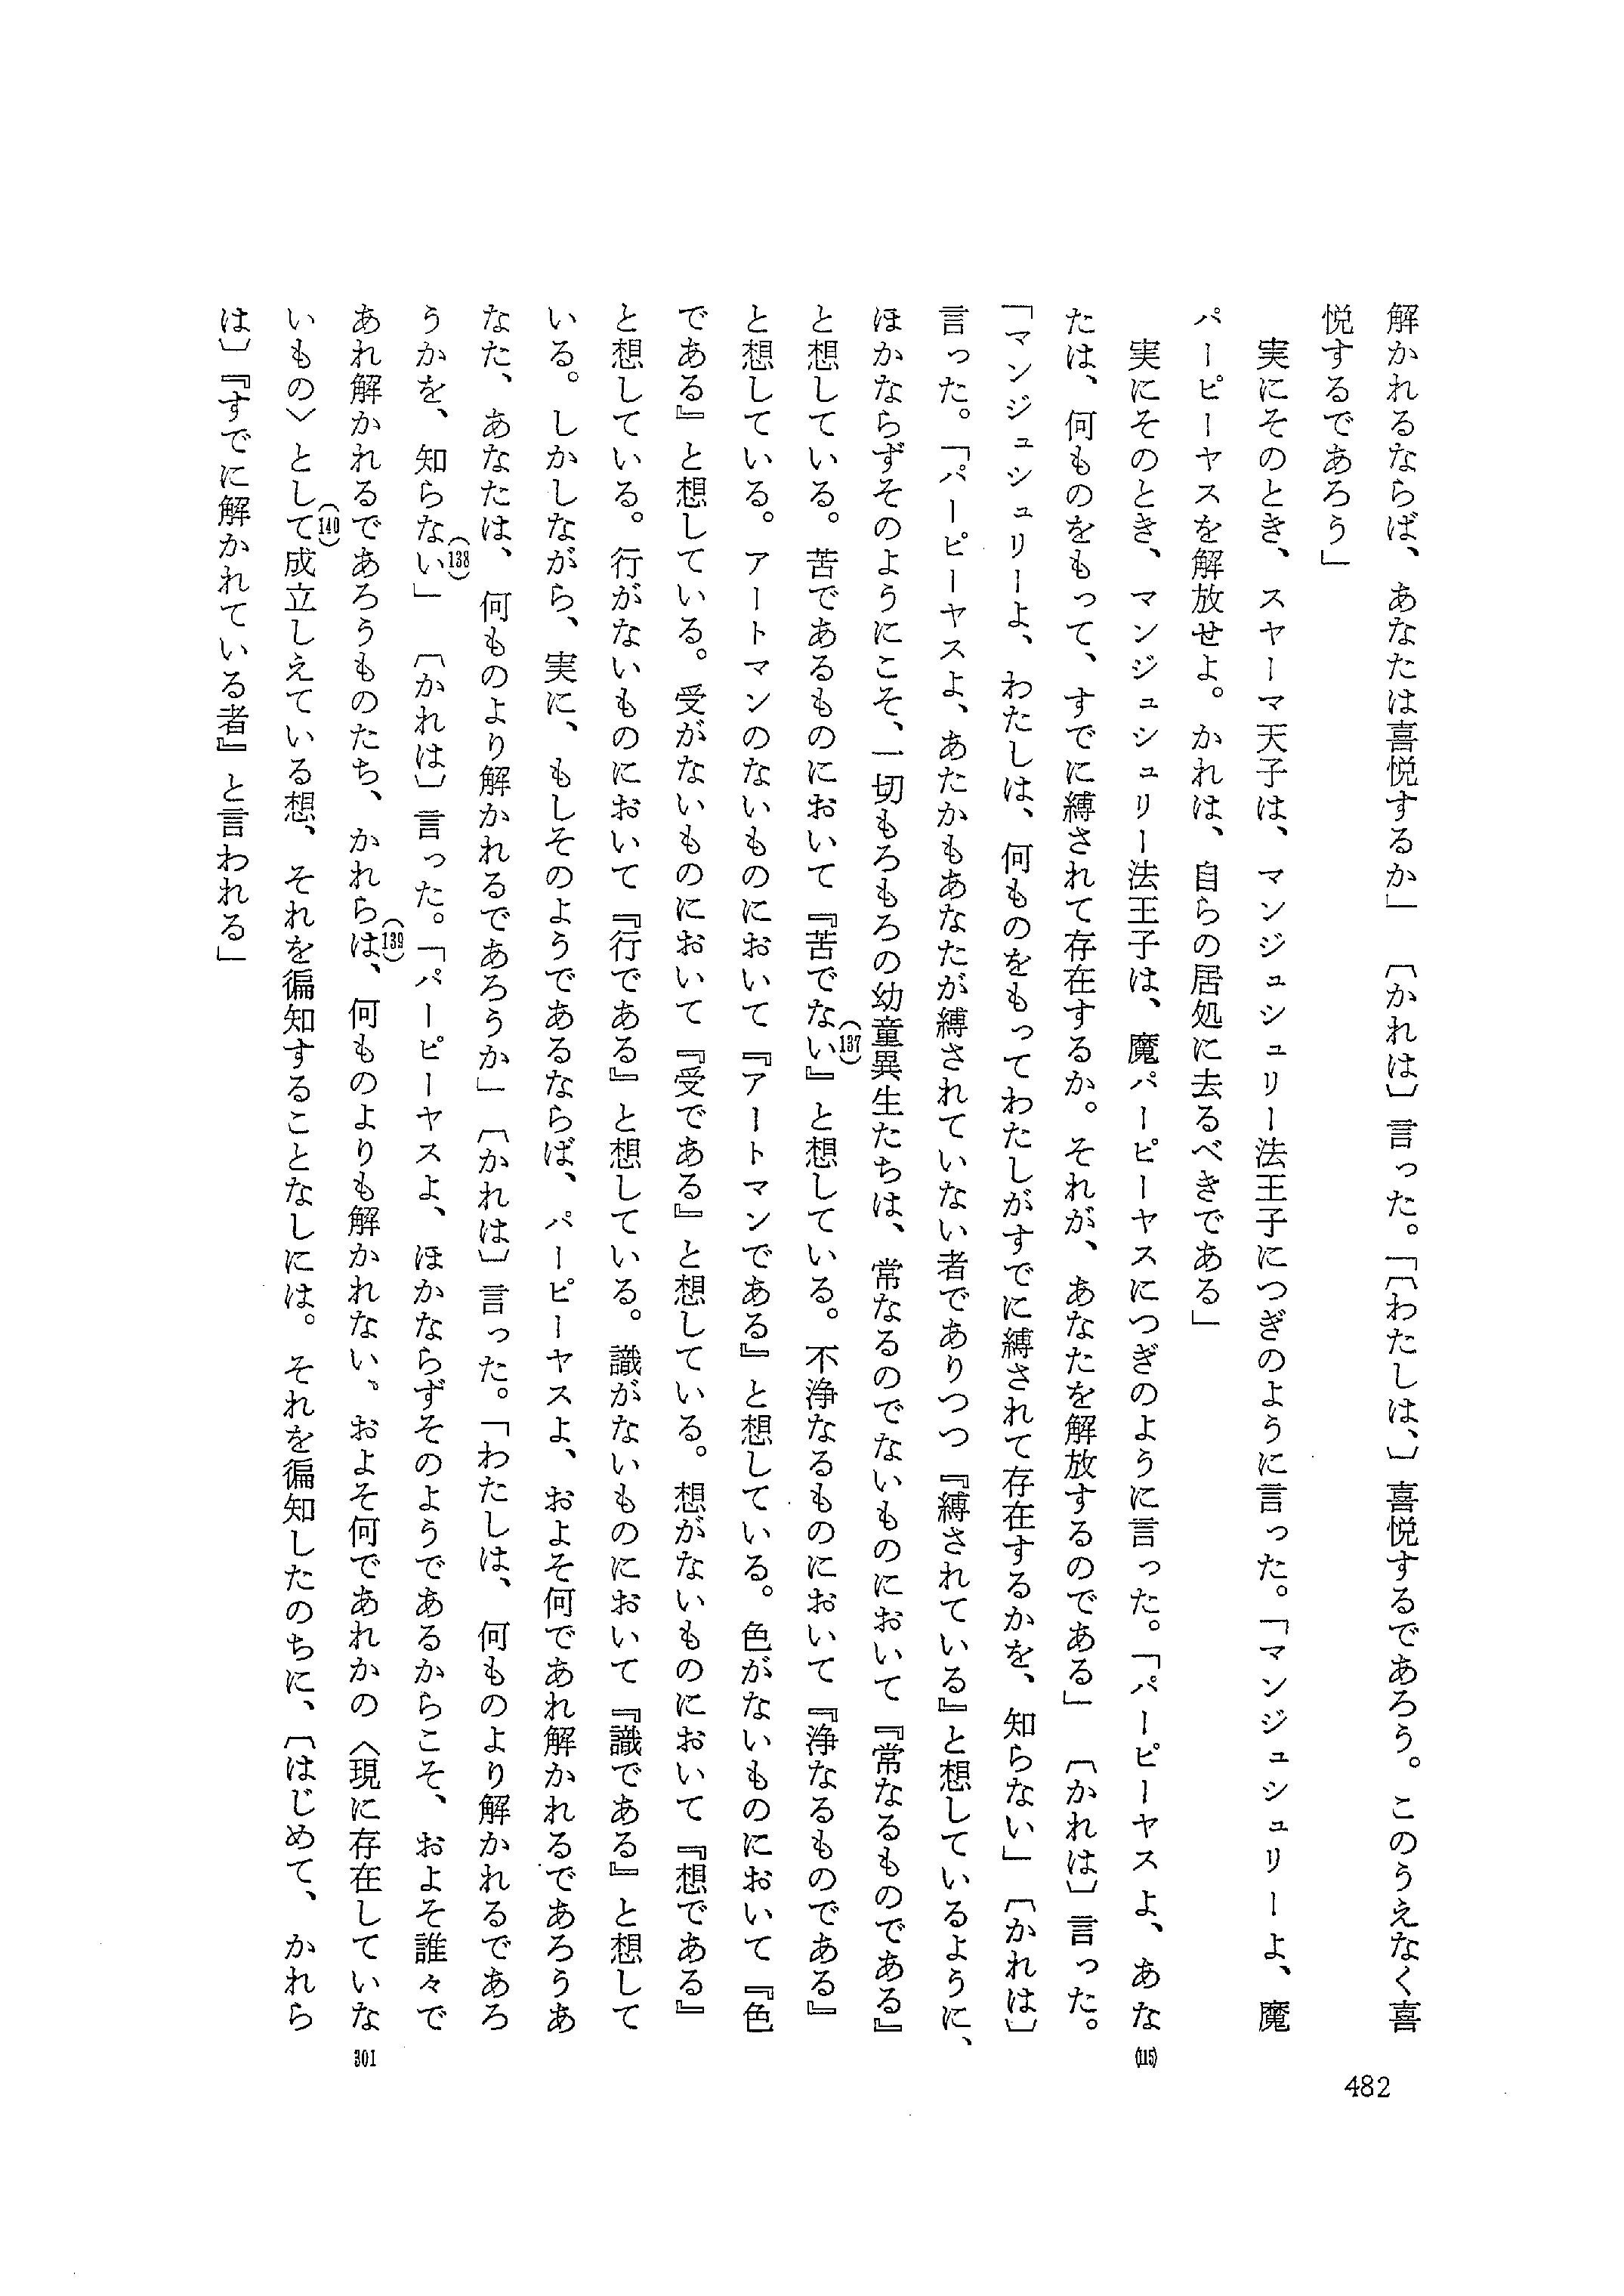 解かれるならば、あなたは喜悦するか」　〔かれは〕言った。「〔わたしは、〕喜悦するであろう。このうえなく喜
悦するであろう」
　実にそのとき、スヤーマ天子は、マンジュシュリー法王子につぎのように言った。「マンジュシュリーよ、魔
パーピーヤスを解放せよ。かれは、自らの居処に去るべきである」
　実にそのとき、マンジュシュリー法王子は、魔パーピーヤスにつぎのように言った。「パーピーヤスよ、あな
(115)
たは、何ものをもって、すでに縛されて存在するか。それが、あなたを解放するのである」　〔かれは〕言った。
「マンジュシュリーよ、わたしは、何ものをもってわたしがすでに縛されて存在するかを、知らない」〔かれは〕
言った。「パーピーヤスよ、あたかもあなたが縛されていない者でありつつ『縛されている』と想しているように、
ほかならずそのようにこそ、一切もろもろの幼童異生たちは、常なるのでないものにおいて『常なるものである』
と想している。苦であるものにおいて『苦でない(137)』と想している。不浄なるものにおいて『浄なるものである』
と想している。アートマンのないものにおいて『アートマンである』と想している。色がないものにおいて『色
である』と想している。受がないものにおいて『受である』と想している。想がないものにおいて『想である』
と想している。行がないものにおいて『行である』と想している。識がないものにおいて『識である』と想して
いる。しかしながら、実に、もしそのようであるならば、パーピーヤスよ、およそ何であれ解かれるであろうあ
なた、あなたは、何ものより解かれるであろうか」〔かれは〕言った。「わたしは、何ものより解かれるであろ
うかを、知らない(138)」　〔かれは〕言った。「パーピーヤスよ、ほかならずそのようであるからこそ、およそ誰々で
あれ解かれるであろうものたち、かれらは(139)、何ものよりも解かれない。およそ何であれかの〈現に存在していな
301
いもの〉として(140)成立しえている想、それを徧知することなしには。それを徧知したのちに、〔はじめて、かれら
は〕『すでに解かれている者』と言われる」
482